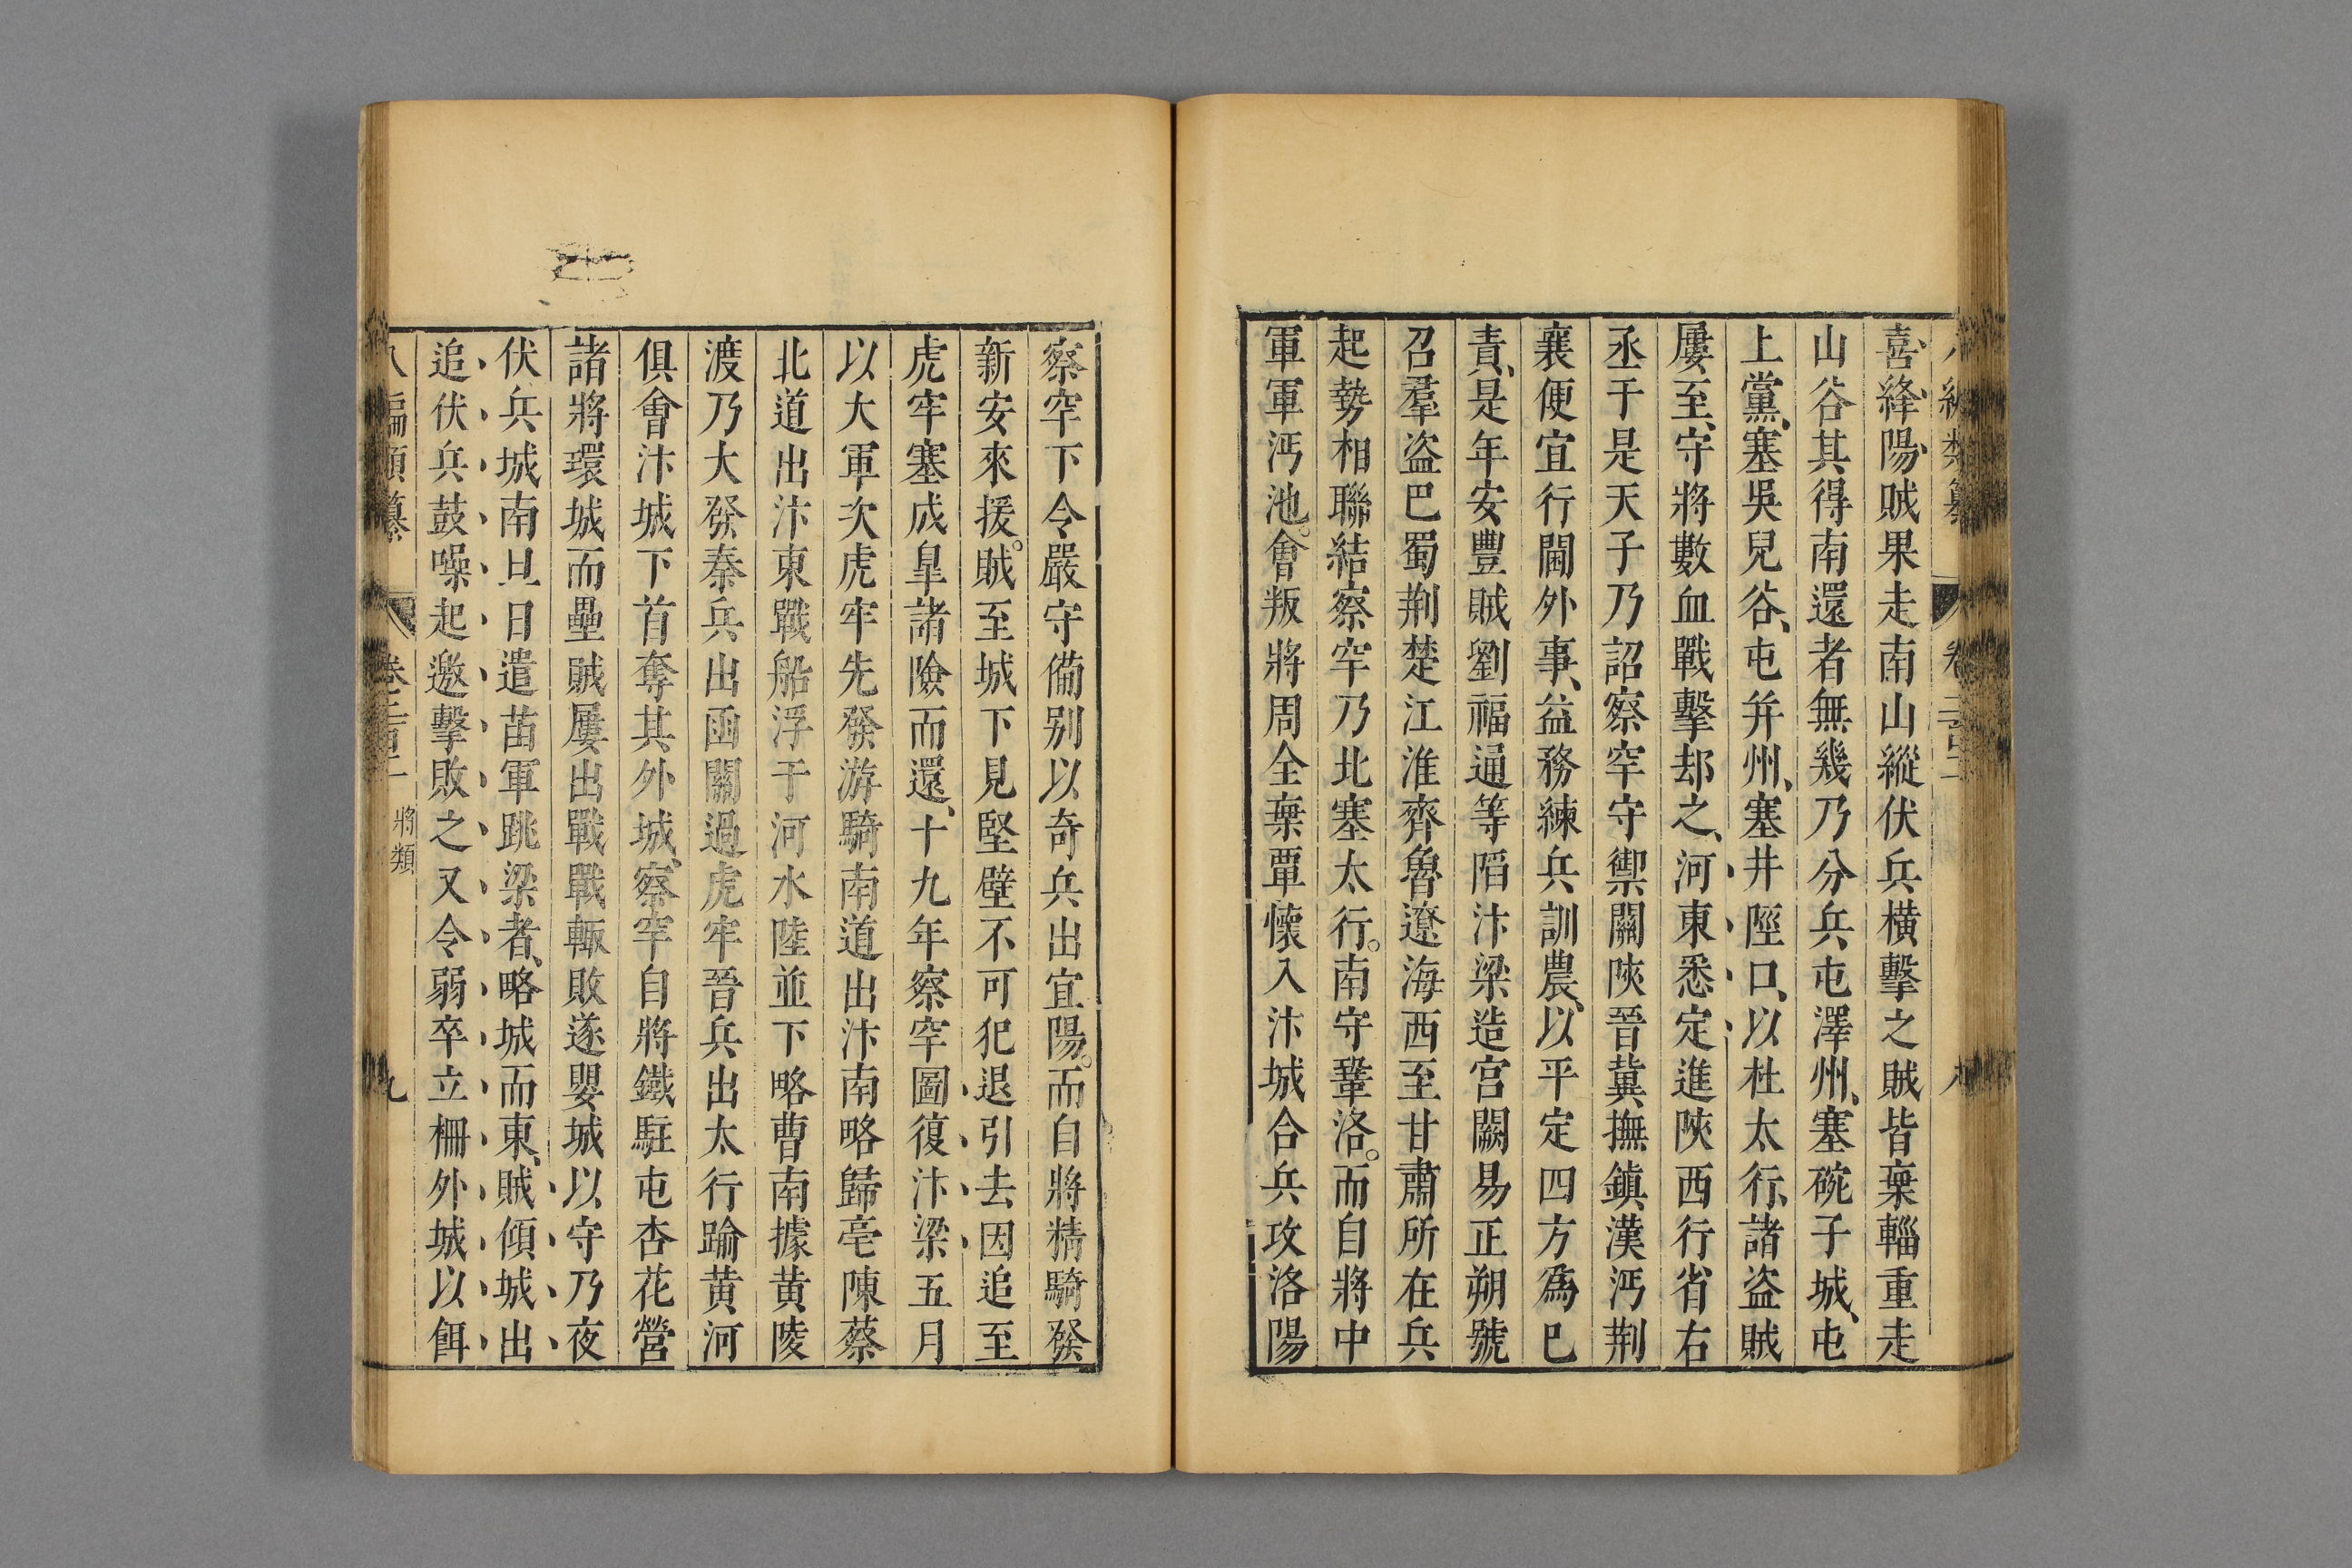 喜絳陽賊果走南山縱伏兵橫擊之賊皆棄輜重走
山谷其得南還者無幾乃分兵屯澤州塞碗子城屯
上黨塞吳兒谷屯并州塞井陘口以杜太行諸盜賊
屢至守將數血戰擊却之河東悉定進陝西行省右
丞于是天子乃詔察罕守禦關陝晉冀撫鎮漢沔荆
襄便宜行閫外事益務練兵訓農以平定四方爲巳
責是年安豐賊劉福通等陷汴梁造宮闕易正朔號
召羣盜巴蜀荆楚江淮齊魯遼海西至甘肅所在兵
起勢相聯結察罕乃北塞太行南守鞏洛而自將中
軍軍沔池會叛將周全棄覃懷入汴城合兵攻洛陽
察罕下令嚴守備别以奇兵出宜陽而自將精騎發
新安來援賊至城下見堅壁不可犯退引去因追至
虎牢塞成皐諸險而還十九年察罕圖復汴梁五月
以大軍次虎牢先發游騎南道出汴南略歸亳陳蔡
北道出汴東戰船浮于河水陸並下略曹南據黄陵
渡乃大發秦兵出函關過虎牢晉兵出太行踰黄河
俱會汴城下首奪其外城察罕自將鐵騎屯杏花營
諸將環城而壘賊屢出戰戰輙敗遂嬰城以守乃夜
伏兵城南旦日遣苗軍跳梁者略城而東賊傾城出
追伏兵鼓噪起邀擊敗之又令弱卒立柵外城以餌
八編類纂 卷二百二 將類 九